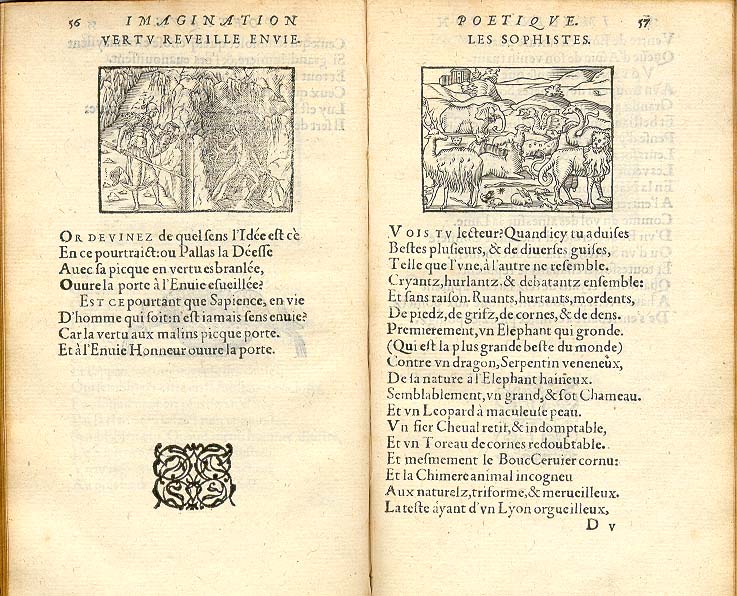 56 IMAGINATION
VERTV REVEILLE ENVIE.
OR DEVINEZ de quel sens l'Idée est cè
En ce pourtraict: ou Pallas la Déesse
Auec sa picque en vertu esbranlée,
Ouure la porte à l'Enuie esueillée?
EST CE pourtant que Sapience, en vie
D'homme qui soit: n'est iamais sens enuie?
Car la vertu aux malins picque porte.
Et à l'Enuie Honneur ouure la porte.
POETIQVE. 57
LES SOPHISTES.
VOIS TV lecteur? Quand icy tu aduises
Bestes plusieurs, & de diuerses guises,
Telle que l'vne, à l'autre ne resemble.
Cryantz, hurlantz, & debatantz ensemble:
Et sans raison. Ruants, hurtants, mordents,
De piedz, de grifz, de cornes, & de dens.
Premierement, vn Elephant qui gronde.
(Qui est la plus grande beste du monde)
Contre vn dragon, Serpentin veneneux,
De sa nature à l'Elephant haineux.
Semblablement, vn grand, & sot Chameau.
Et vn Leopard à maculeuse peau.
Vn fier Cheual retif, & indomptable,
Et vn Toreau de cornes redoubtable.
Et mesmement le Bouc Ceruier cornu:
Et la Chimere animal incogneu
Aux naturelz, triforme, & merueilleux.
La teste äyant d'vn Lyon orgueilleux,
D v